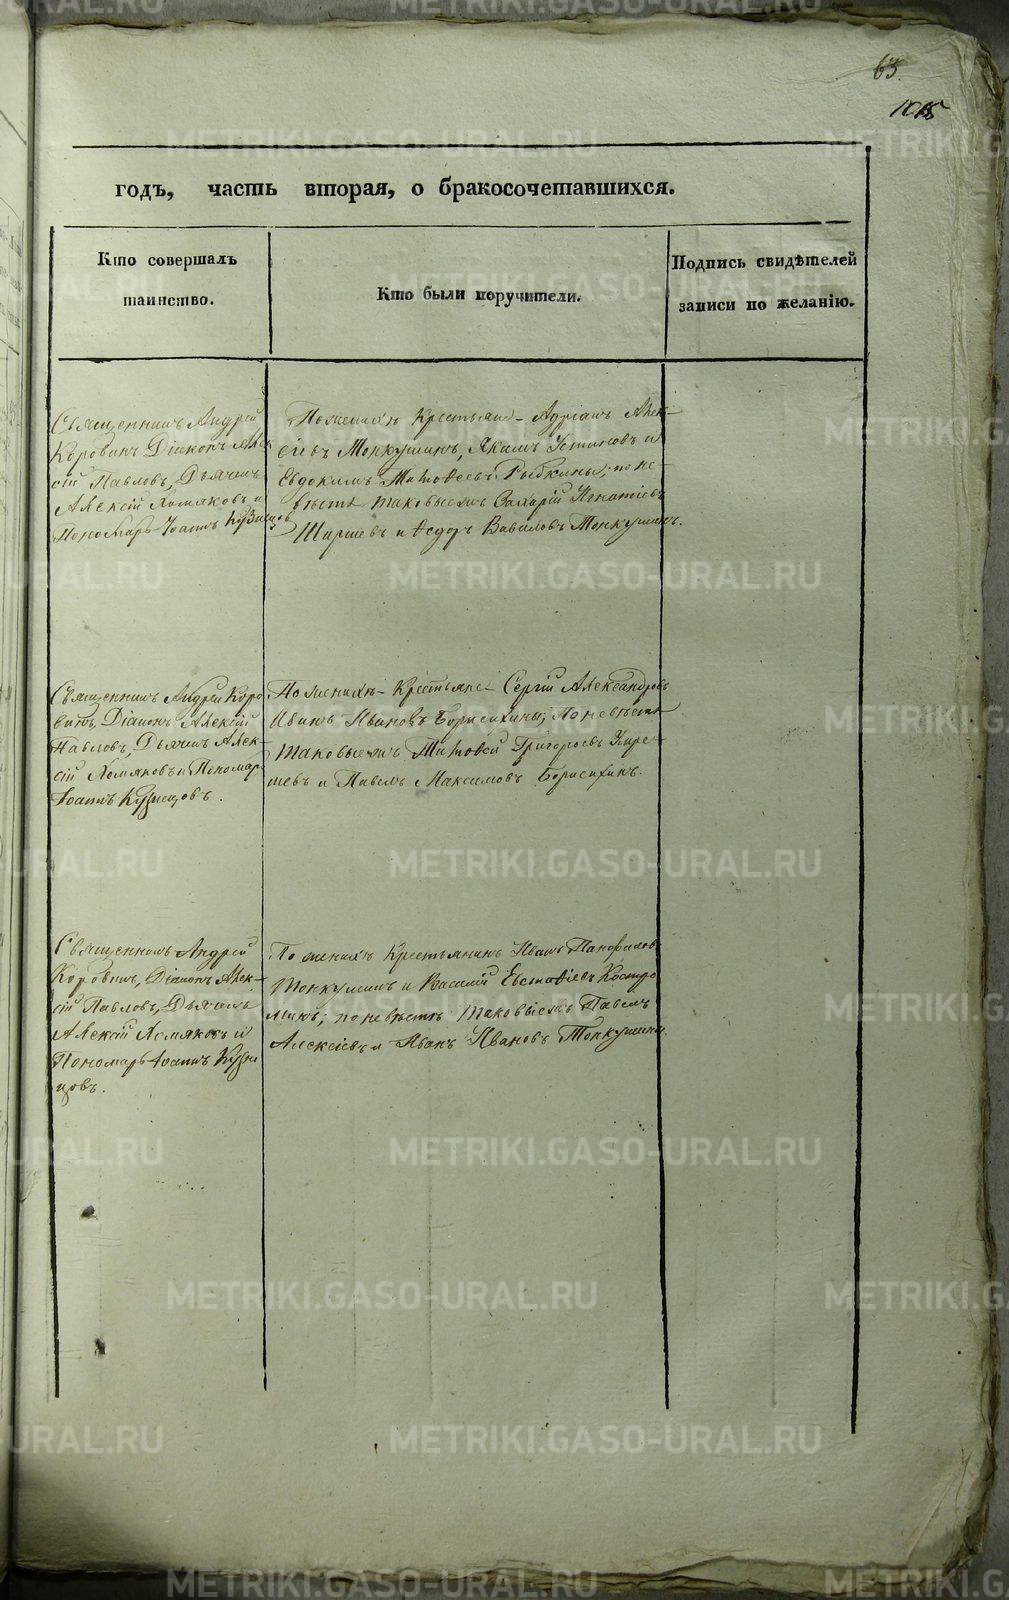 63.
годъ, часть вторая, о бракосочетавшихся.
Кто совершалъ
таинство.
Кто были поручители.
Подпись свидѣтелей
записи по желанію.
Священникъ Андрей
Коровинъ Діаконъ Алек
сій Павловъ, Дьячекъ
Алексій Хомяковъ и
Пономарь Іоаннъ Кузнецовъ
По женихѣ Крестьяне Адріанъ Алек-
сіевъ Тонкушинъ, Якимъ Устиновъ и
Евдокимъ Матѳеевъ Рыбкины; по не-
вѣстѣ таковыежъ Захарій Игнатіевъ
и Ѳедоръ Вавиловъ Тонкушинъ.
Священникъ Андрей Коро
винъ, Діаконъ Алексій
Павловъ, Дьячекъ Алек-
сій Хомяковъ и Пономарь
Іоаннъ Кузнецовъ.
По женихѣ Крестьяне Сергій Александровъ
Иванъ Ивановъ Борисихины; По невѣстѣ
таковыежъ Григорьевъ
и Павелъ Максимовъ Борисихинъ.
Священникъ Андрей
Коровинъ, Діаконъ Алек-
сій Павловъ, Дьячекъ
Алексій Хомяковъ и
Пономарь Іоаннъ Кузне
цовъ.
По женихѣ Крестьянинъ Иванъ Панфиловъ
Тонкушинъ и Василій Евстаѳіевъ Костро
минъ; по невѣстѣ таковыежъ Павелъ
Алексіевъ и Иванъ Ивановъ Тонкушины.
METRIKI.GASO-URAL.RU